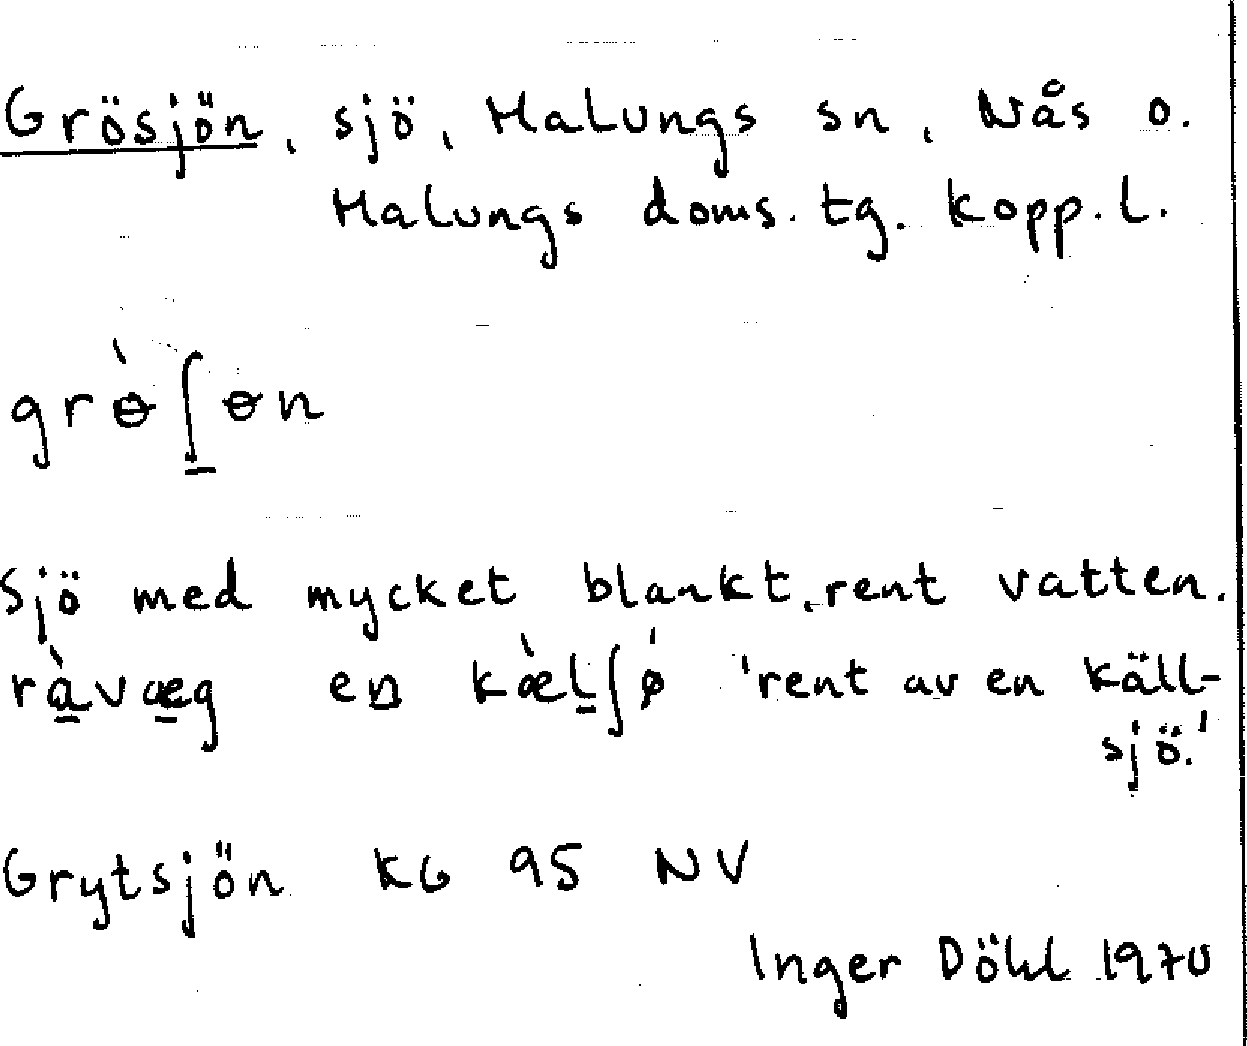 Grösjön, sjö, Malungs sn, Nås o.
Malungs doms. tg. Kopp. l.
grɵ̀ʃ̠ɵn
Sjö med mycket blankt, rent vatten.
rà̠væ̠g en kæ̀l̠ʃǿ 'rent av en käll-
sjö.'
Grytsjön KG 95 NV
Inger Döhl 1970